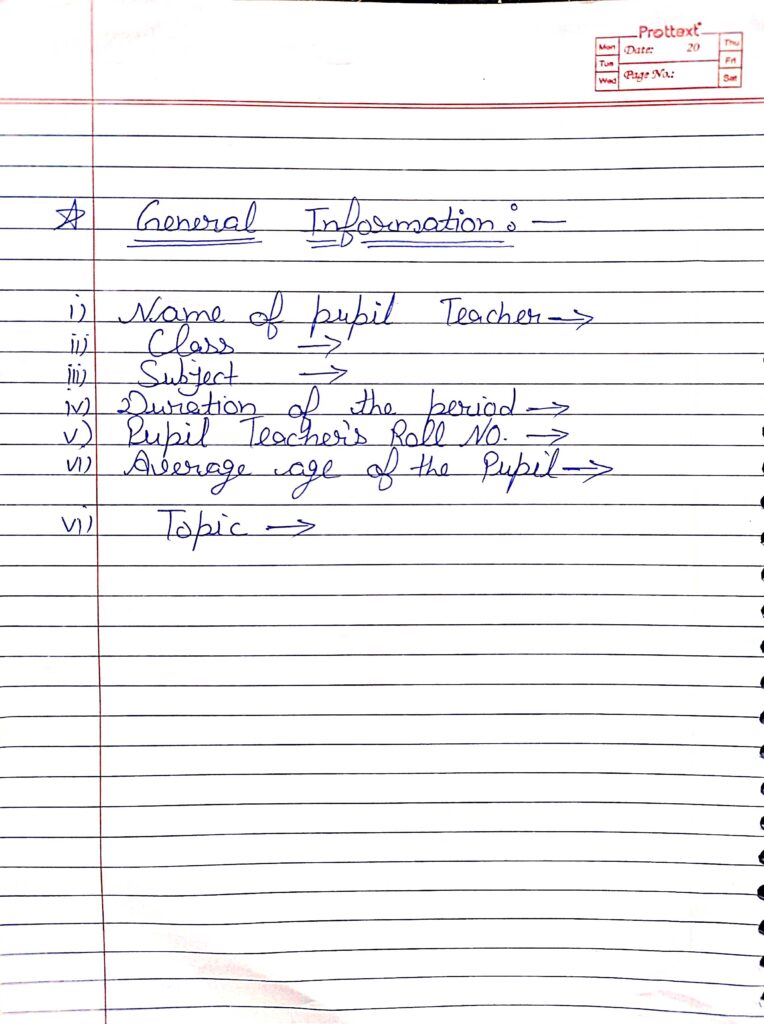 Prottext
Mon Date: 20 Thu
Tue Fri
Wed Page No.: Sat
☆ General Information :-
i) Name of pupil Teacher →
ii) Class →
iii) Subject →
iv) Duration of the period →
v) Pupil Teacher's Roll No. →
vi) Average age of the Pupil →
vii) Topic →